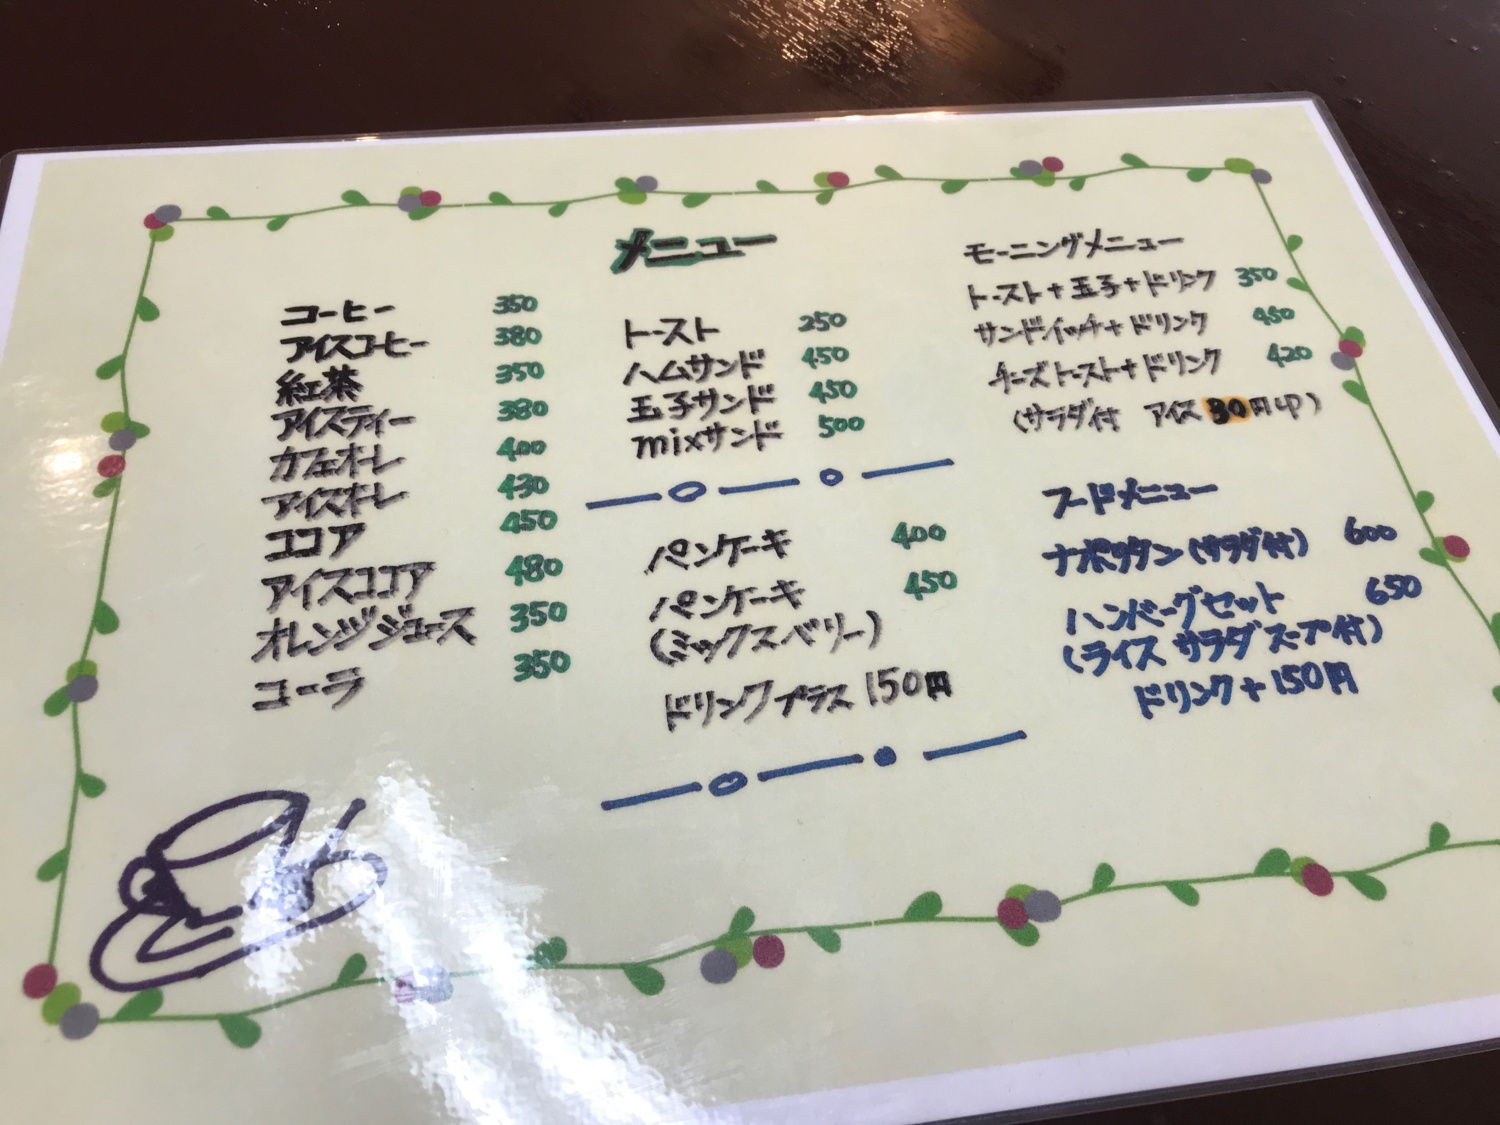 メニュー
コーヒー 350
アイスコーヒー 380
紅茶 350
アイスティー 380
カフェオーレ 400
アイスオーレ 430
ココア 450
アイスココア 480
オレンジジュース 350
コーラ 350
トースト 250
ハムサンド 450
玉子サンド 450
mixサンド 500
パンケーキ 400
パンケーキ 450
(ミックスベリー)
ドリンクプラス 150円
モーニングメニュー
トースト+玉子+ドリンク 350
サンドイッチ+ドリンク 450
チーズトースト+ドリンク 420
(サラダ付 アイス 30円UP)
フードメニュー
ナポリタン(サラダ付) 600
ハンバーグセット 650
(ライス サラダ スープ付)
ドリンク+150円